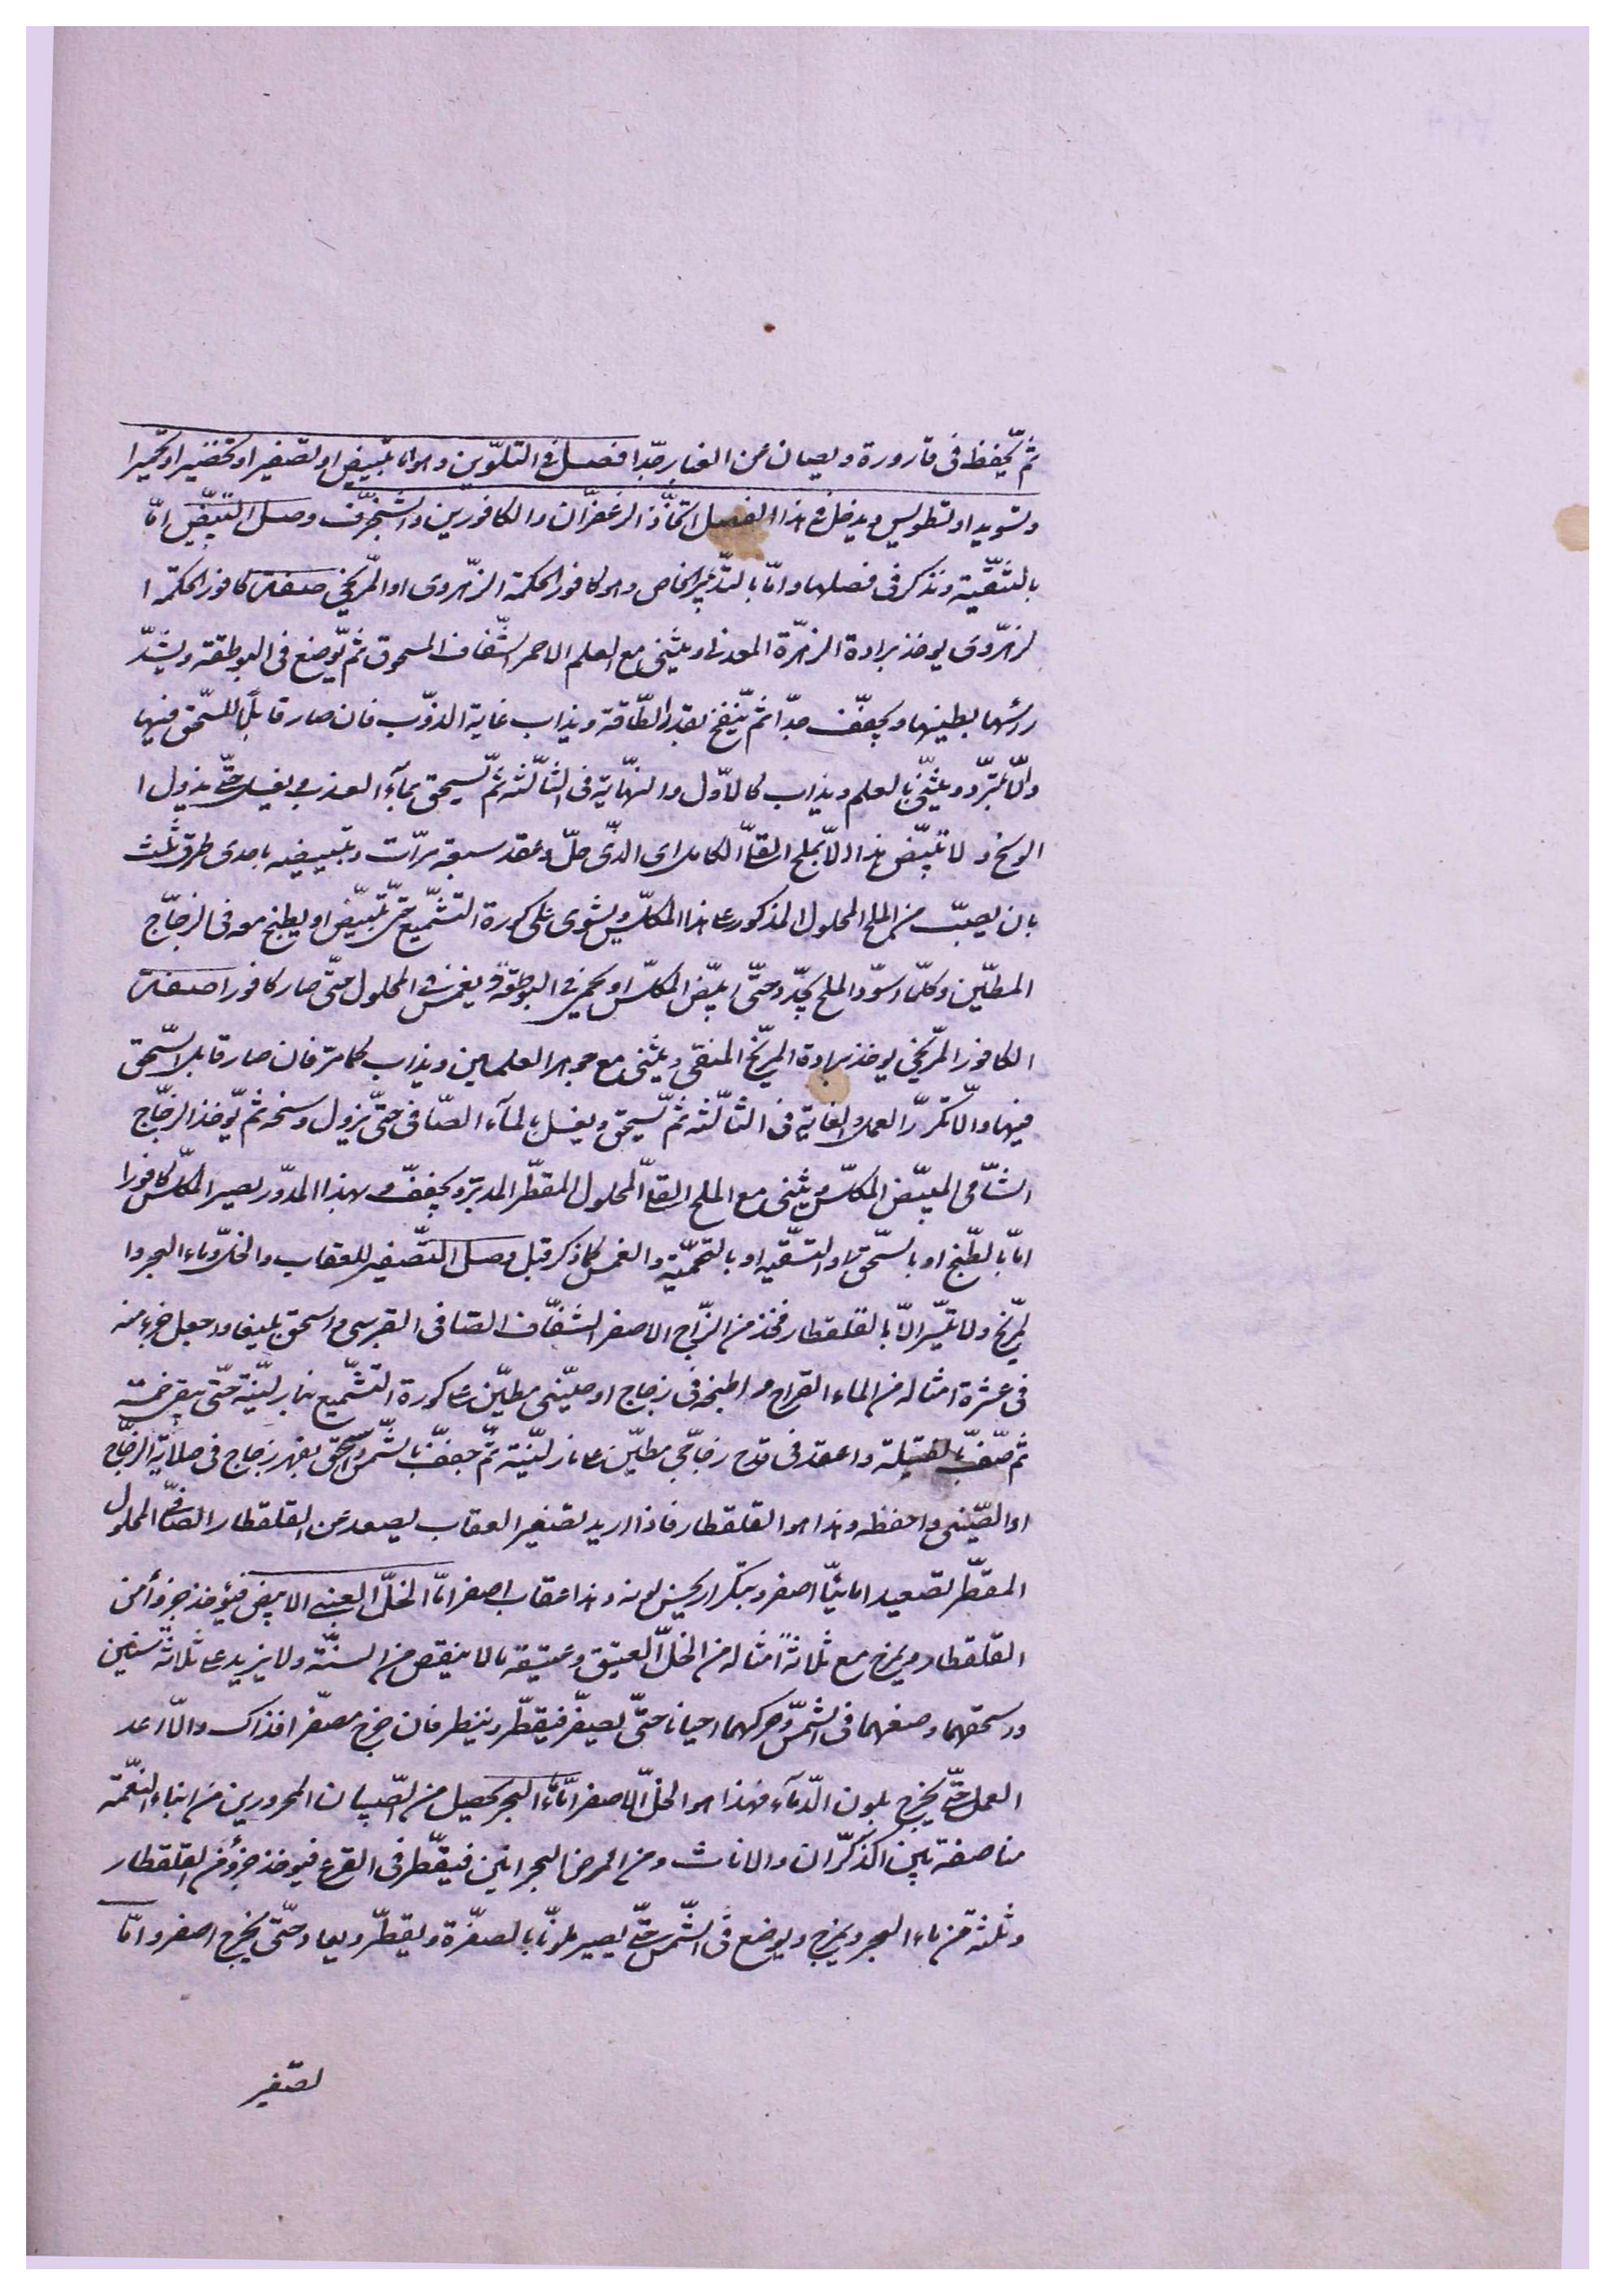 ثم يحفظ فى قارورة ويصان عن الغبار جدا فصل فى التلوين وهو اما تبييض او تصفير او تخضير او تحميرا
وتسويد او تطويس ويدخل فى هذا الفصل اتخاذ الزعفران والكافورين والشنجرف وصل التبيض اما
بالتنقية ونذكر فى فصلها واما بالتدبير الخاص وهو كافور الحكمة الزهروى او المريخى صفة كافور الحكمة ا
لزهروى يوخذ برادة الزهرة المعدنى ويثنى مع العلم الاحمر الشفاف المسحوق ثم يوضع فى البوطقة ويشد
رئسها بطينها ويجفف جدا ثم ينفخ بقدر الطاقة ويذاب غاية الذوب فان صار قابلا للسحق فبها
والا تبرد ويثنى بالعلم ويذاب كالاول والنهاية فى الثالثة ثم يسحق بماء العذب ويغسل حتى يزول ا
الوسخ ولا تبيض هذا الا بملح القلا الكامل اى الذى حل وعقد سبعة مرات وتبييضه باحدى طرق ثلث
بان يصب من الملح المحلول المذكور على هذا المكلس ويشوى على كورة التشميع حتى تبيض او يطبخ معه فى الزجاج
المطين وكلما سود الملح يجدد حتى ابيض المكلس او يحمى فى البوطقة ويغمس فى المحلول حتى صار كافورا صفة
الكافور المريخى يوخذ برادة المريخ المنقى ويثنى مع جوهر العلمين ويذاب كما مر فان صار قابلا لسحق
فبها والا تكرر العمل والغاية فى الثالثة ثم يسحق ويغسل بالماء الصافى حتى يزول وسخه ثم يوخذ الزجاج
الشامى المبيض المكلس ويثنى مع الملح القلا المحلول المقطر المدبر ويجفف وبهذا المدور يصير المكلس كافورا
اما بالطبخ او بالسحق والتسقيه او بالتحمية والغمس كما ذكر قبل وصل التصفير للعقاب والخل وماء البحر وا
لمريخ ولا تيسر الا بالقلقطار فخذ من الزاج الاصفر الشفاف الصافى القبرسى واسحق بليغا واجعل جزء منه
فى عشرة امثاله من الماء القراح واطبخه فى زجاج او صينى مطين على كورة التشميع بنار لينة حتى يبقى خمسه
ثم صف بالفتيلة واعقد فى قدح زجاجى مطين على نار لينة ثم جفف بالشمس واسحق بفهر زجاج فى صلاية الزجاج
او الصينى واحفظه وهذا هو القلقطار فاذا اريد تصفير العقاب يصعد عن القلقطار الصافى المحلول
المقطر تصعيد امائيا اصفر ويتكرار يحسن لونه وهذا عقاب اصفر اما الخل العنبى الابيض فيؤخذ جزوأ من
القلقطار ويمزج مع ثلاثة امثاله من الخل العتيق وعتيقه ما لا ينقص من السنة ولا يزيد على ثلاثة سنين
وسحقهما وضعهما فى الشمس وحركهما احيانا حتى يصفر فيقطر وينظر فان خرج مصفرا فذاك والا اعد
العمل حتى يخرج بلون الدماء فهذا هو الخل الاصفر اماماء البحر يحصيل من الصبيان المحرورين من ابناء النعمة
مناصفة بين الذكران والاناث ومن المرض البحرانين فيقطر فى القرع فيوخذ جزؤ من القلقطار
وثلثة من ماء البحر ويمزج ويوضع فى الشمس حتى يصير ملونا بالصفرة ويقطر ويعاد حتى يخرج اصفر واما
تصفير